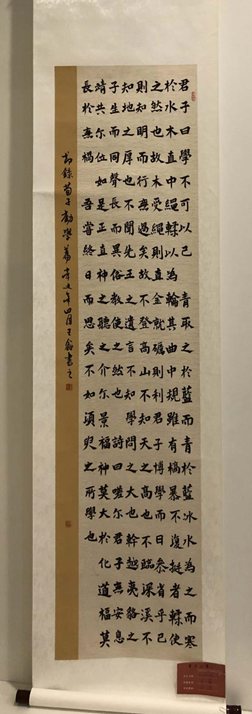 君子曰學不可以已青取之於藍而青於藍冰水為之而寒
於水木直中繩輮以為輪其曲中規雖有槁暴不復挺者輮使
之然也故木受繩則直金就礪則利君子博學而日參省乎己
則知明而行無過矣故不登高山不知天之高也不臨深溪不
知地之厚也不聞先王之遺言不知學問之大也幹越夷貉之
子生而同聲長而異俗教使之然也詩曰嗟尔君子無安息
靖共尔位好是正直神之聽之介尔景福神莫大於化道福莫
長於無禍吾嘗終日而思矣不如須臾之所學也
節錄荀子勸學篇年四月王書之